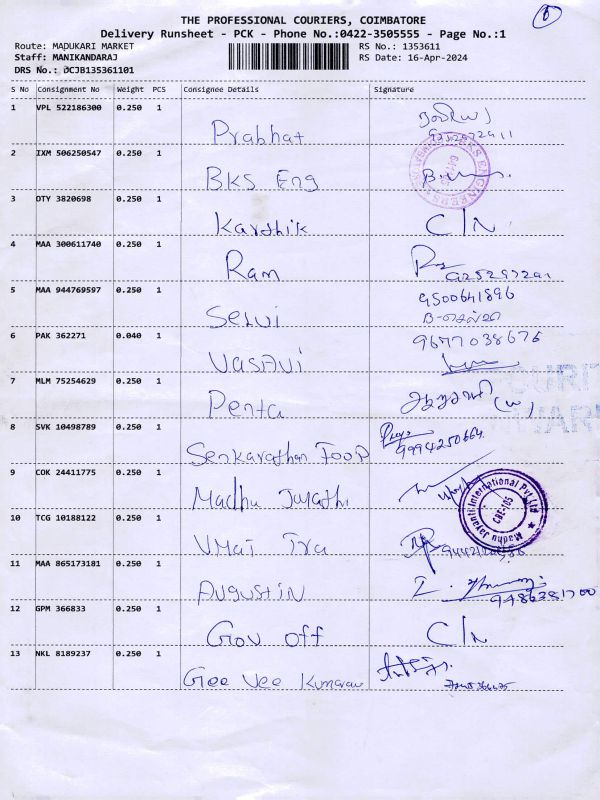 THE PROFESSIONAL COURIERS, COIMBATORE
Delivery Runsheet - PCK - Phone No.:0422-3505555 - Page No.:1
Route: MADUKARI MARKET
RS No.: 1353611
Staff: MANIKANDARAJ
RS Date: 16-Apr-2024
DRS No.: DCJB135361101
S No Consignment No Weight PCS Consignee Details Signature
1 VPL 522186300 0.250 1
Prabhat
2 IXM 506250547 0.250 1
BKS Eng
3 DTY 3820698 0.250 1
Karthik C/N
4 MAA 300611740 0.250 1
Ram
5 MAA 944769597 0.250 1
9500641896
Selvi B-செல்வி
6 PAK 362271 0.040 1
9677038676
Vasavi
7 MLM 75254629 0.250 1
Penta
8 SVK 10498789 0.250 1
9994250664
Senkarathan Food
9 COK 24411775 0.250 1
Madhu Jayanti International Pvt Ltd
CBE-105
Madhu Jayathi
10 TCG 10188122 0.250 1
Umai Tra
11 MAA 865173181 0.250 1
Augustin
9486381700
12 GPM 366833 0.250 1
Gov off C/N
13 NKL 8189237 0.250 1
Gee Vee Kumaran